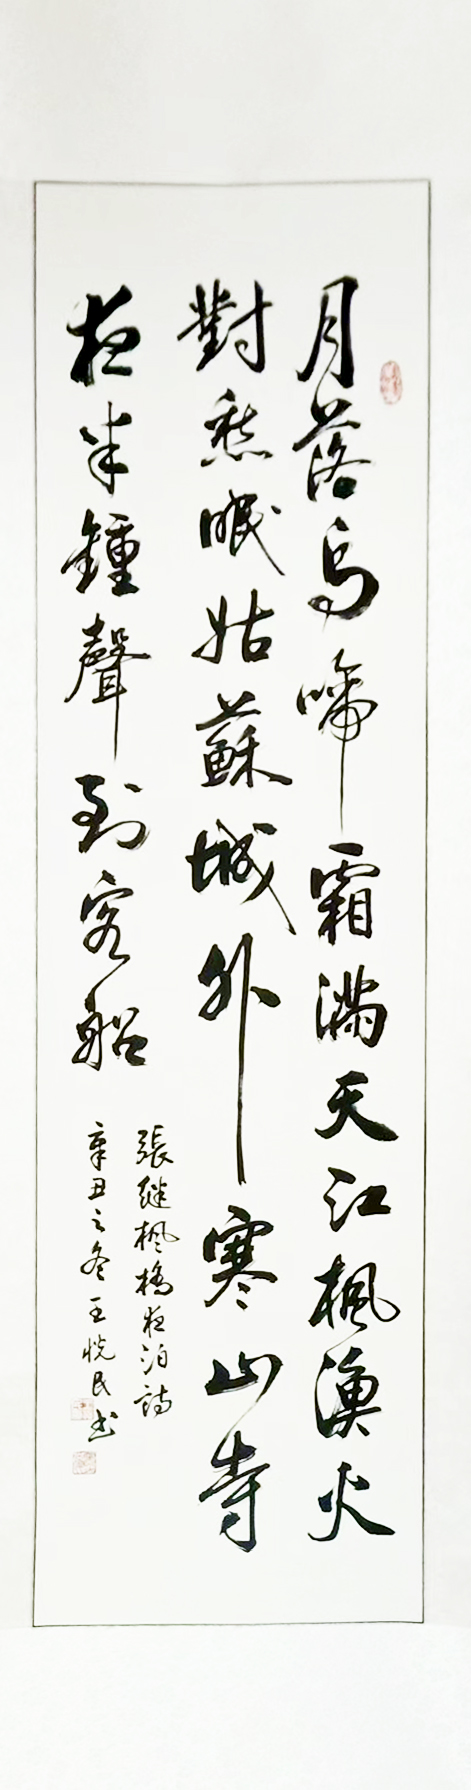 月落烏啼霜滿天江楓漁火
對愁眠姑蘇城外寒山寺
夜半鐘聲到客船
張繼楓橋夜泊詩
辛丑之冬王悦民书